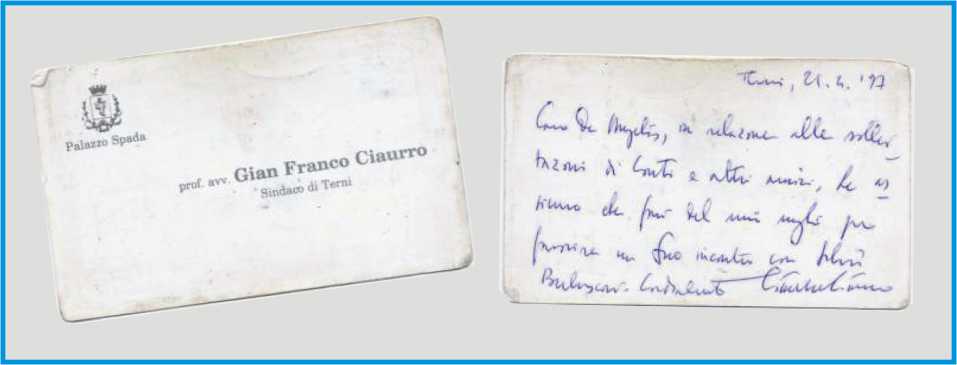 Palazzo Spada
prof. avv. Gian Franco Ciaurro
Sindaco di Terni
Terni, 21.4.'97
Caro De Angelis, in relazione alle solleci_
tazioni di Conti e altri amici, Le as_
sicuro che farò del mio meglio per
favorire un Suo incontro con Silvio
Berlusconi. Cordialmente Gianfranco Ciaurro